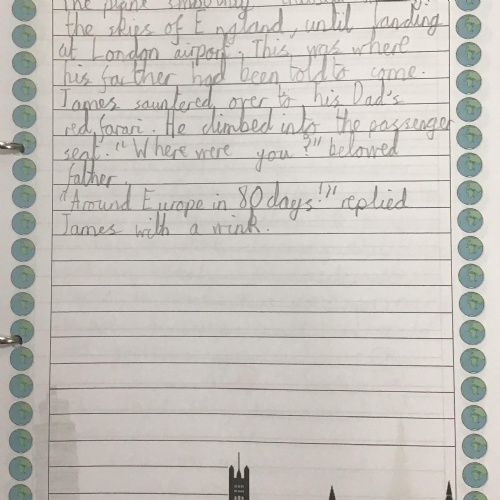 the plane smoothly through
the skies of England, until landing
at London airport. This was where
his farther had been told to come.
James sauntered over to his Dad's
red farari. He climbed into the passenger
seat. "Where were you?!" belowed
father.
"Around Europe in 80 days!" replied
James with a wink.